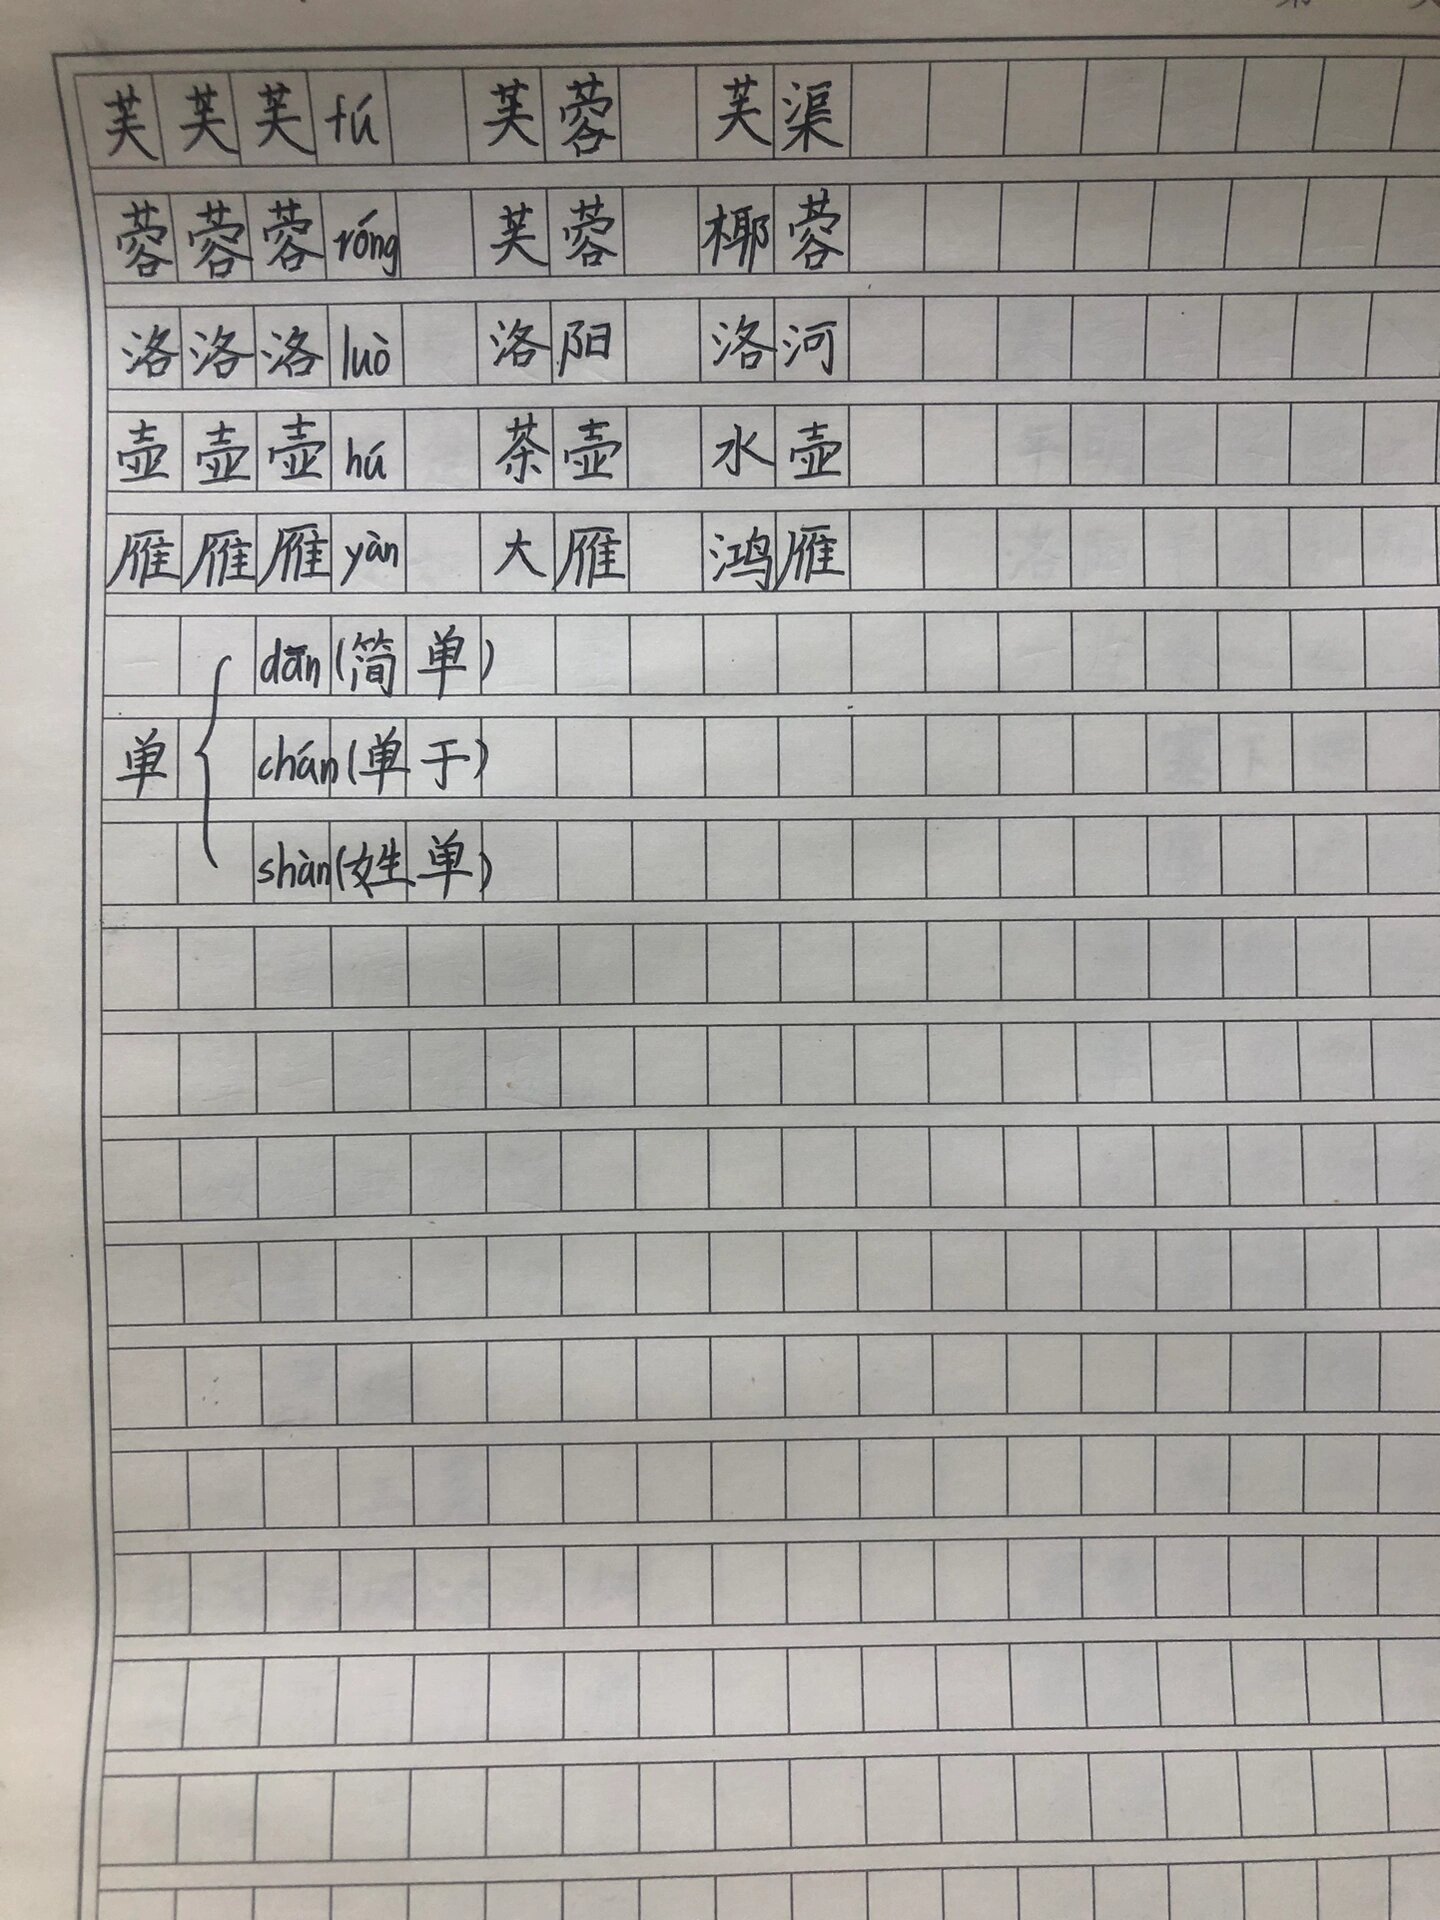 芙芙芙fú 芙蓉 芙渠
蓉蓉蓉róng 芙蓉 椰蓉
洛洛洛luò 洛阳 洛河
壶壶壶hú 茶壶 水壶
雁雁雁yàn 大雁 鸿雁
dān(简单)
单 chán(单于)
shàn(姓单)